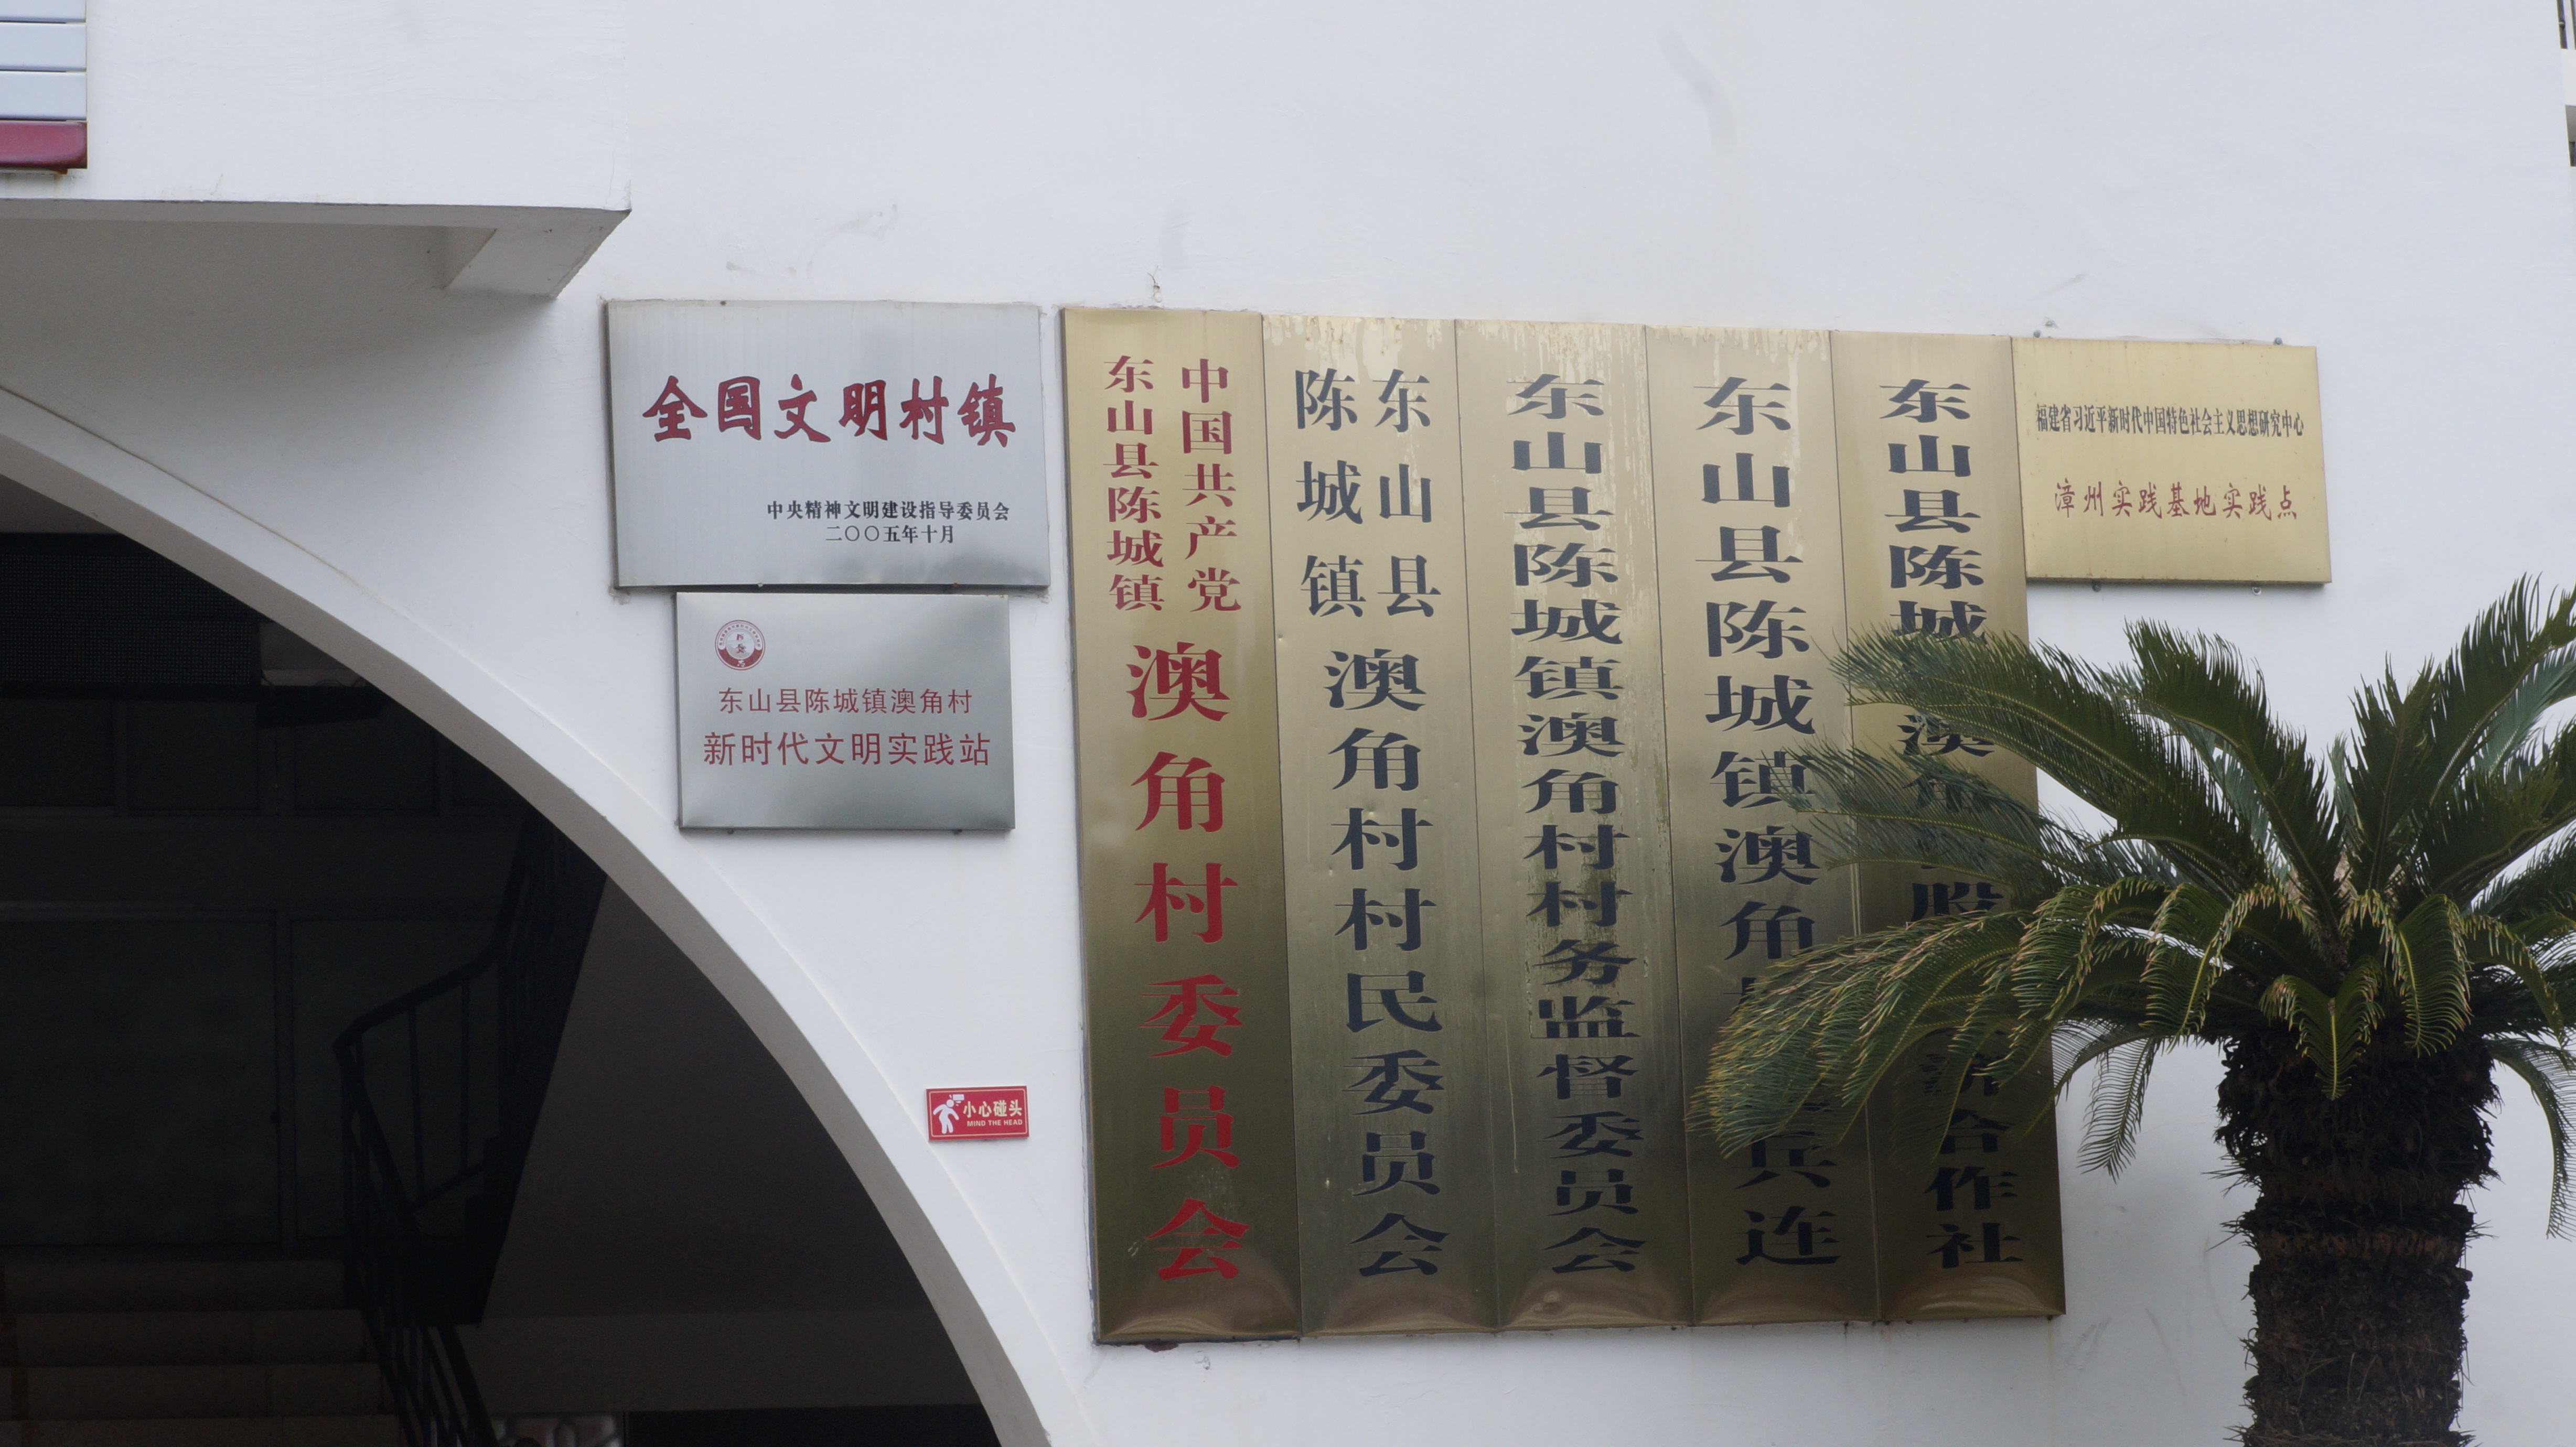 全国文明村镇
中央精神文明建设指导委员会
二〇〇五年十月
东山县陈城镇澳角村
新时代文明实践站
小心碰头
MIND THE HEAD
中国共产党
东山县陈城镇
澳角村委员会
东山县
陈城镇
澳角村村民委员会
东山县陈城镇澳角村村务监督委员会
东山县陈城镇澳角 兵连
东山县陈城 澳角 股 济合作社
福建省习近平新时代中国特色社会主义思想研究中心
漳州实践基地实践点